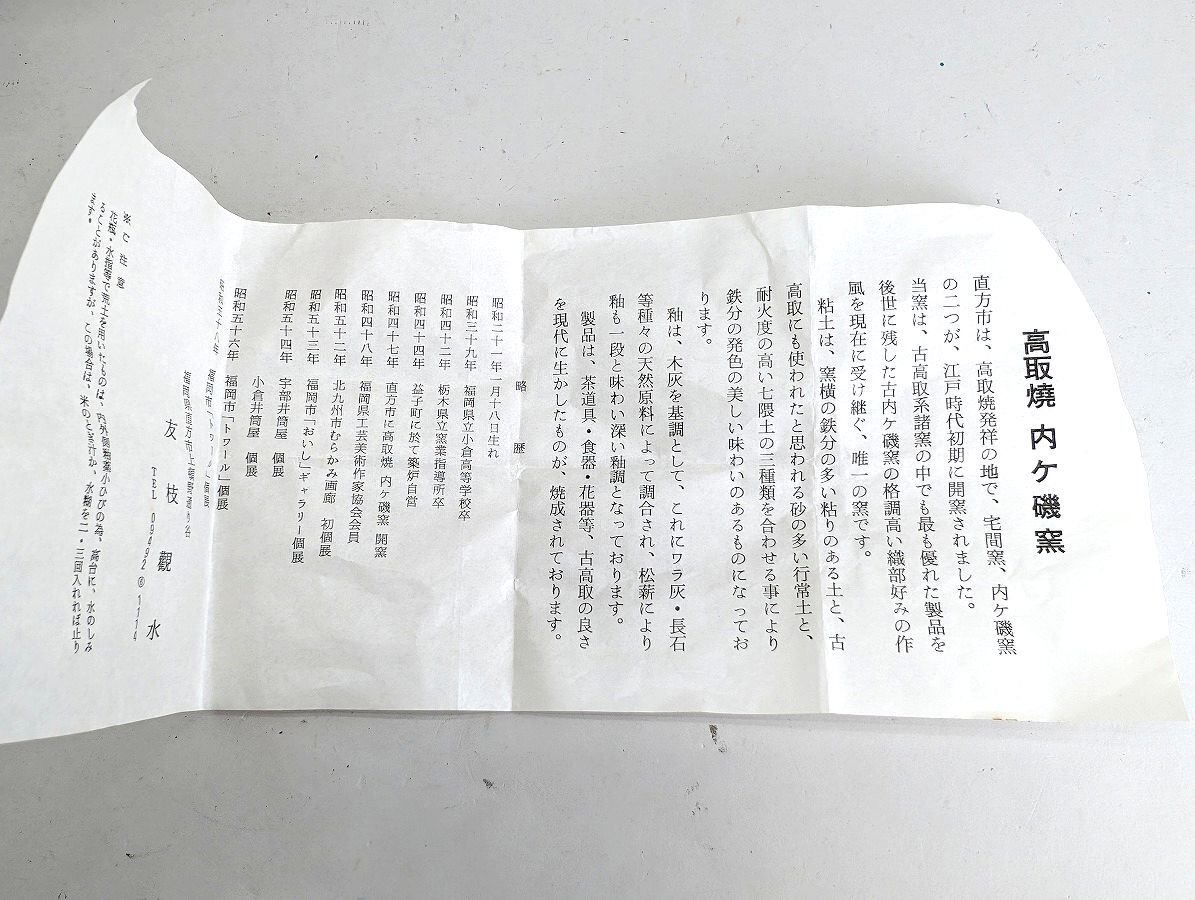 高取燒 内ケ磯窯
直方市は、高取焼発祥の地で、宅間窯、内ケ磯窯
の二つが、江戸時代初期に開窯されました。
当窯は、古高取系諸窯の中でも最も優れた製品を
後世に残した古内ケ磯窯の格調高い織部好みの作
風を現在に受け継ぐ、唯一の窯です。
粘土は、窯横の鉄分の多い粘りのある土と、古
高取にも使われたと思われる砂の多い行常土と、
耐火度の高い七隈土の三種類を合わせる事により
鉄分の発色の美しい味わいのあるものになってお
ります。
釉は、木灰を基調として、これにワラ灰・長石
等種々の天然原料によって調合され、松薪により
釉も一段と味わい深い釉調となっております。
製品は、茶道具・食器・花器等、古高取の良さ
を現代に生かしたものが、焼成されております。
略 歴
昭和二十一年一月十八日生れ
昭和三十九年 福岡県立小倉高等学校卒
昭和四十二年 栃木県立窯業指導所卒
昭和四十四年 益子町に於て築炉自営
昭和四十七年 直方市に高取焼 内ケ磯窯 開窯
昭和四十八年 福岡県工芸美術作家協会会員
昭和五十二年 北九州市むらかみ画廊 初個展
昭和五十三年 福岡市「おいし」ギャラリー個展
昭和五十四年 宇部井筒屋 個展
小倉井筒屋 個展
昭和五十六年 福岡市「トワール」個展
昭和五十八年 福岡市「トワール」個展
福岡県直方市上頓野通り谷
友枝 觀水
TEL 09492⑥1114
※ご注意
花瓶・水指等で荒土を用いたものは、内外側釉薬小ひびの為、高台に、水のしみ
ることがありますが、この場合は、米のとぎ汁か、水糊を二・三回入れれば止り
ます。